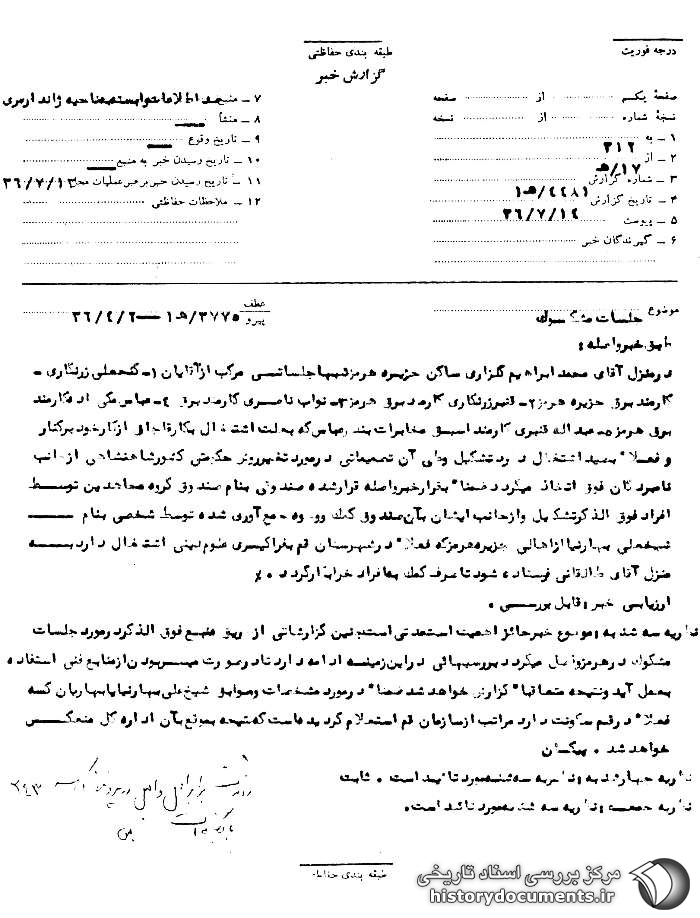 درجه فوریت
طبقه بندی حفاظتی
گزارش خبر
صفحهٔ یکم از صفحه
نسخهٔ شماره از نسخه
۱ ـ به ۳۱۲
۲ ـ از ۱۷/هـ
۳ ـ شماره گزارش ۴۴۸۱/هـ۱
۴ ـ تاریخ گزارش ۳۶/۷/۱۴
۵ ـ پیوست
۶ ـ گیرندگان خبر
۷ ـ منبع ناحیه ژاندارمری
۸ ـ منشأ
۹ ـ تاریخ وقوع
۱۰ ـ تاریخ رسیدن خبر به منبع
۱۱ ـ تاریخ رسیدن خبر برهبر عملیات ۳۶/۷/۱۳
۱۲ ـ ملاحظات حفاظتی
موضوع جلسات مشکوک
عطف
پیرو ۳۷۷۵/هـ۱ ـ ۳۶/۴/۶
طبق خبر واصله :
در منزل آقای محمد ابراهیم گلزاری ساکن جزیره هرمز شبها جلساتی مرکب از آقایان ۱ـ گنجعلی زرنگاری ـ
کارمند برق جزیره هرمز ۲ـ قنبر زرنگاری کارمند برق هرمز ۳ـ نواب ناصری کارمند برق ۴ـ عباس مکی زاده کارمند
برق هرمز ۵ـ عبداله قنبری کارمند اسبق مخابرات بندرعباس که بعلت اشتغال بکار قاچاق از کار خود برکنار
و فعلا" بصید اشتغال دارد تشکیل وطی آن تصمیماتی درمورد تغییر رژیم حکومتی کشور شاهنشاهی ازجانب
نامبردگان فوق اتخاذ میگردد ضمنا" بقرار خبر واصله قرار شده صندوقی بنام صندوق گروه مجاهدین توسط
افراد فوق الذکر تشکیل و ازجانب ایشان بآن صندوق کمک و وجوه جمع آوری شده توسط شخصی بنام
شیخعلی بهارنیا از اهالی جزیره هرمز که فعلا" در شهرستان قم بفراگیری علوم دینی اشتغال دارد به
منزل آقای طالقانی فرستاده شود تا صرف کمک به افراد خرابکار گردد .
ارزیابی خبر : قابل بررسی .
نظریه سه شنبه : موضوع خبر حائز اهمیت است مدتی است چنین گزارشاتی از طریق منبع فوق الذکر درمورد جلسات
مشکوک در هرمز واصل میگردد بررسیهائی در این زمینه ادامه دارد تا درصورت میسر بودن از منابع فنی استفاده
بعمل آید ونتیجه متعاقبا" گزارش خواهد شد ضمنا" درمورد مشخصات و سوابق شیخ علی بهارنیا یا بهاریان که
فعلا" در قم سکونت دارد مراتب از سازمان قم استعلام گردیده است که نتیجه بموقع بآن اداره کل منعکس
خواهد شد . پیکان
نظریه چهارشنبه : نظریه سه شنبه مورد تائید است . ثابت
نظریه جمعه : نظریه سه شنبه مورد تائید است .
طبقه بندی حفاظتی
مرکز بررسی اسناد تاریخی
historydocuments.ir